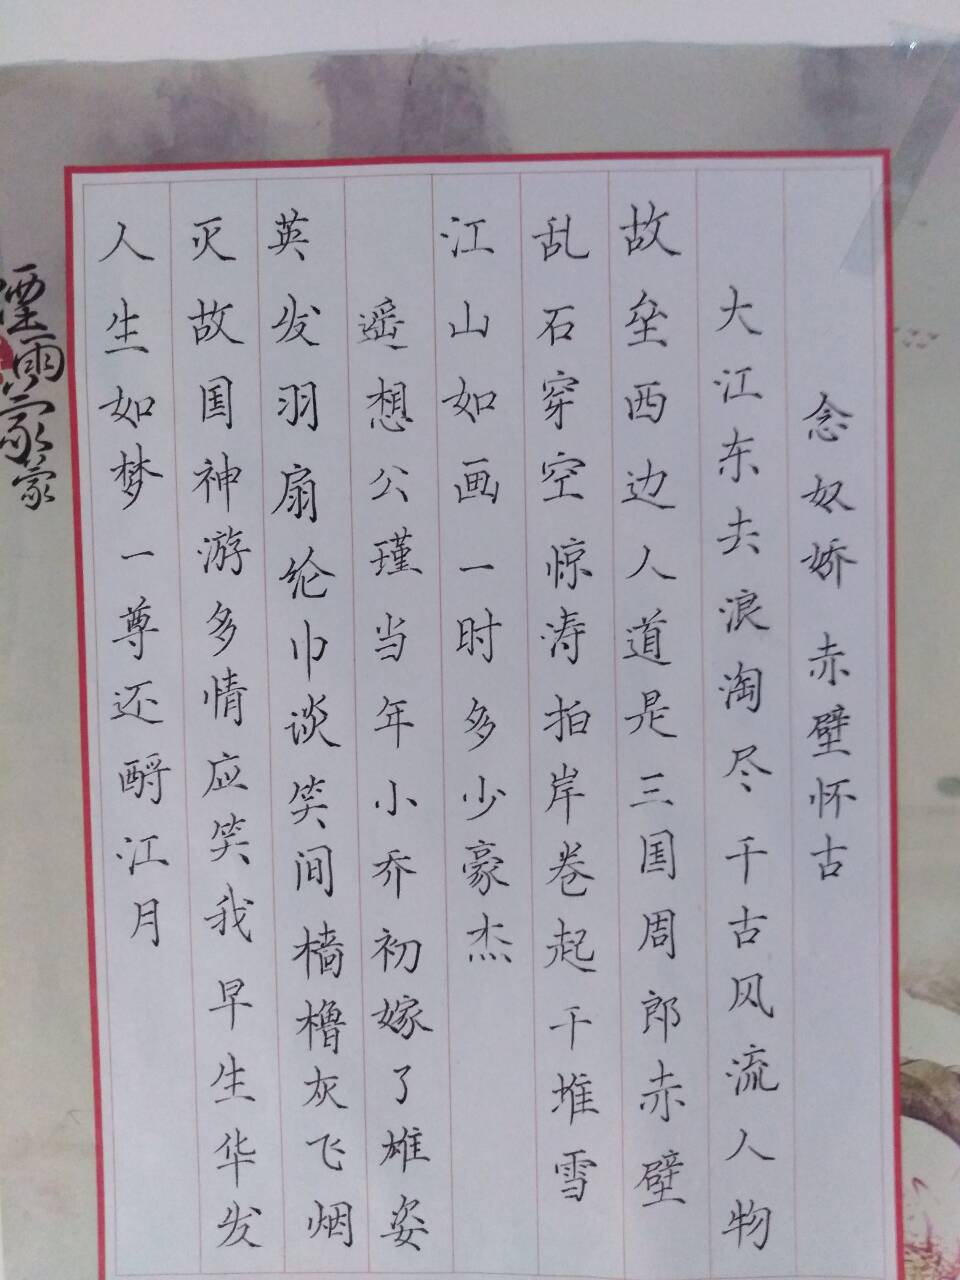 念奴娇 赤壁怀古
大江东去浪淘尽千古风流人物
故垒西边人道是三国周郎赤壁
乱石穿空惊涛拍岸卷起千堆雪
江山如画一时多少豪杰
遥想公瑾当年小乔初嫁了雄姿
英发羽扇纶巾谈笑间樯橹灰飞烟
灭故国神游多情应笑我早生华发
人生如梦一尊还酹江月
煙雨蒙蒙